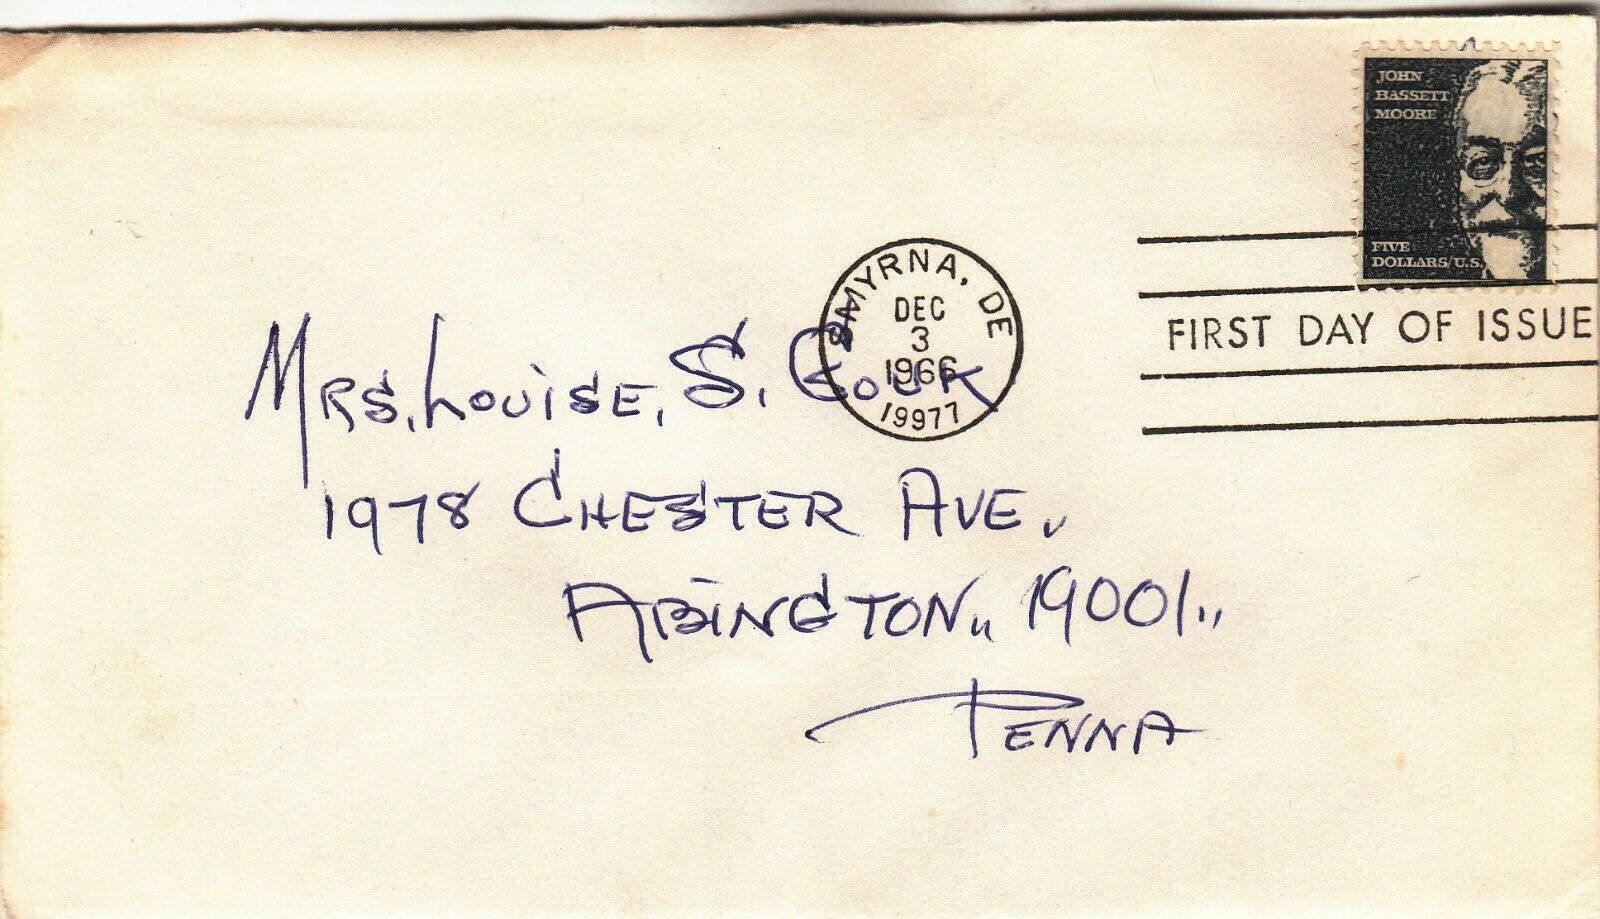 JOHN
BASSETT
MOORE
FIVE
DOLLARS/U.S.
SMYRNA, DE
DEC
3
1966
19977
FIRST DAY OF ISSUE
MRS. LOUISE, S. COUK
1978 CHESTER AVE.
ABINGTON,, 19001,,
PENNA